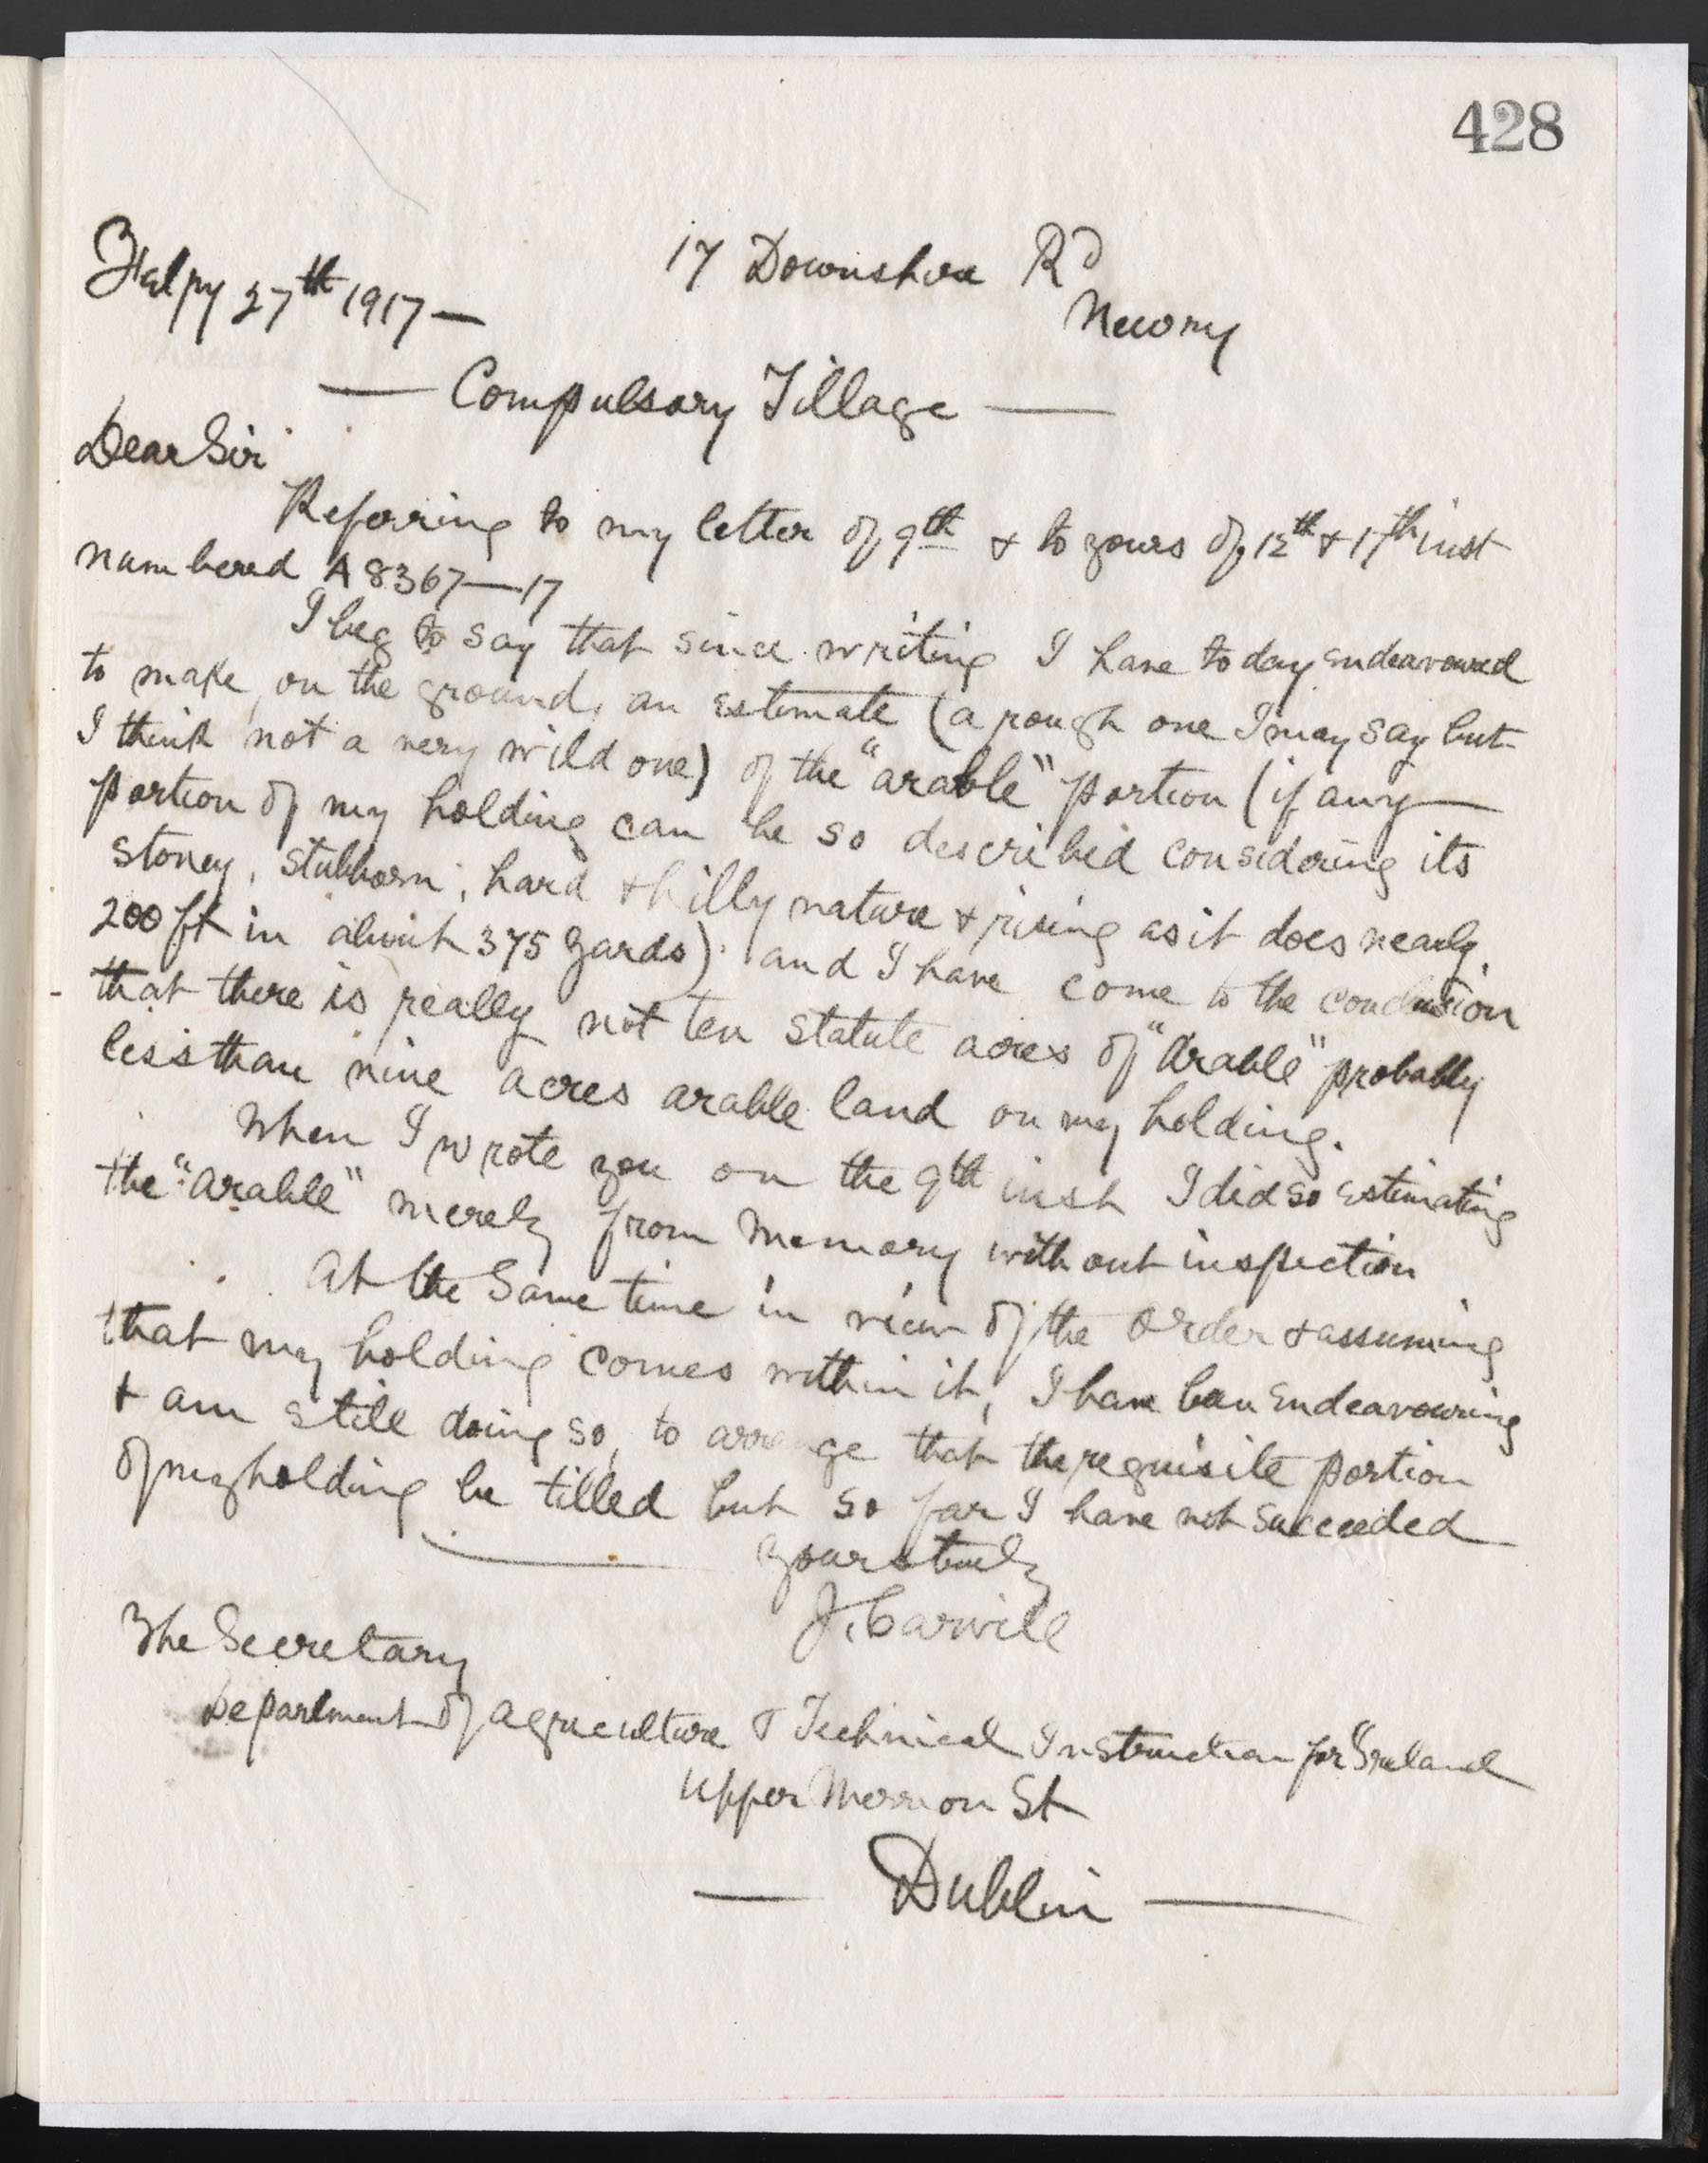 428
17 Downshire Rd
Febry 27th 1917 —
Newry
— Compulsory Tillage —
Dear Sir
Referring to my letter of 9th & to yours of 12th & 17th inst
numbered A 8367—17
I beg to say that since writing I have today endeavoured
to make, on the ground, an estimate (a rough one I may say but
I think not a very wild one) of the "arable" portion (if any
portion of my holding can be so described considering its
stoney, stubborn, hard & hilly nature & rising as it does nearly
200 ft in about 375 yards) and I have come to the conclusion
that there is really not ten statute acres of "Arable" probably
less than nine acres arable land on my holding.
When I wrote you on the 9th inst I did so estimating
the "arable" merely from memory without inspection
At the same time in view of the order & assuming
that my holding comes within it, I have been endeavouring
& am still doing so, to arrange that the requisite portion
of my holding be tilled but so far I have not succeeded
yours truly
J. Carvill
The Secretary
Department of Agriculture & Technical Instruction for Ireland
Upper Merrion St
— Dublin —